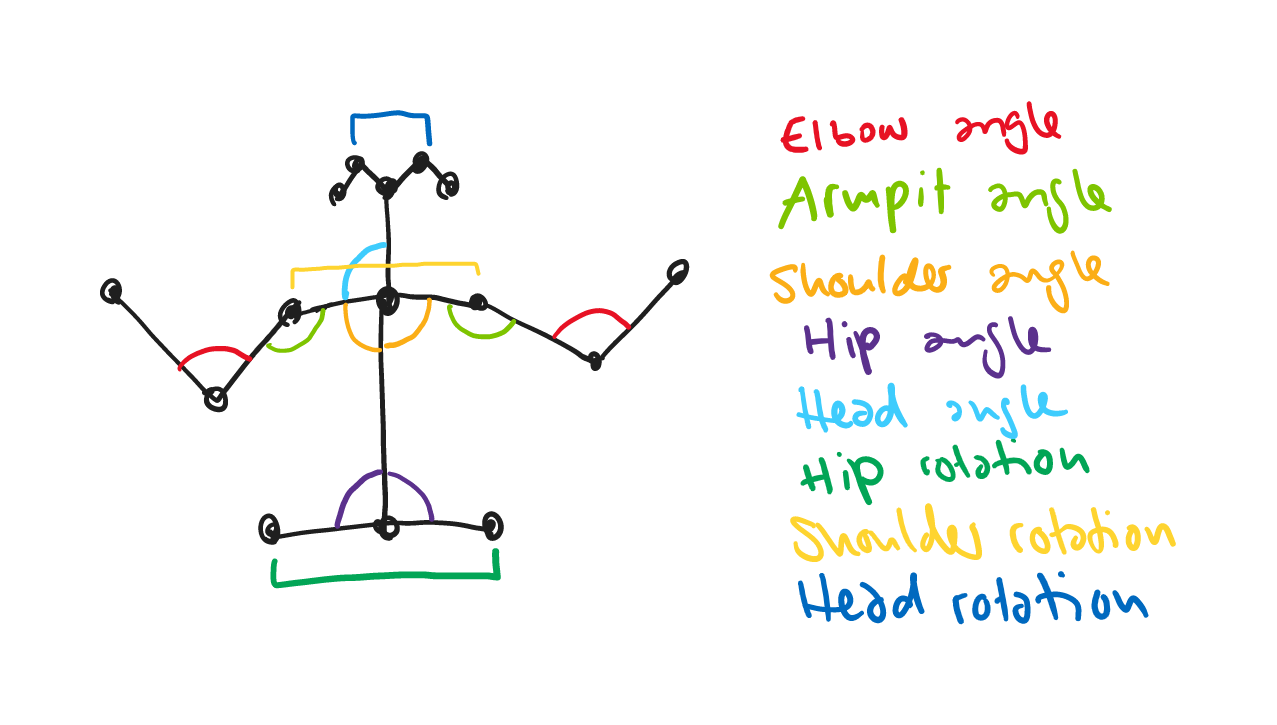 Elbow angle
Armpit angle
Shoulder angle
Hip angle
Head angle
Hip rotation
Shoulder rotation
Head rotation